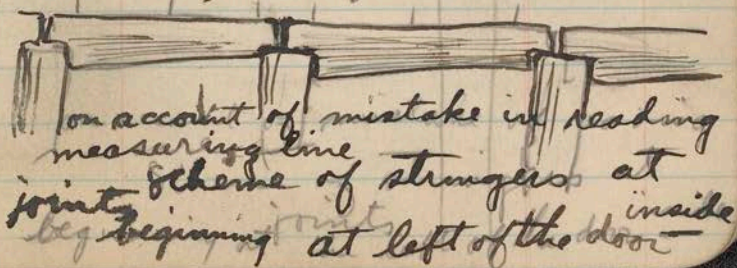 on account of mistake in reading
measuring line
Scheme of stringers at
joints inside
beginning at left of the door